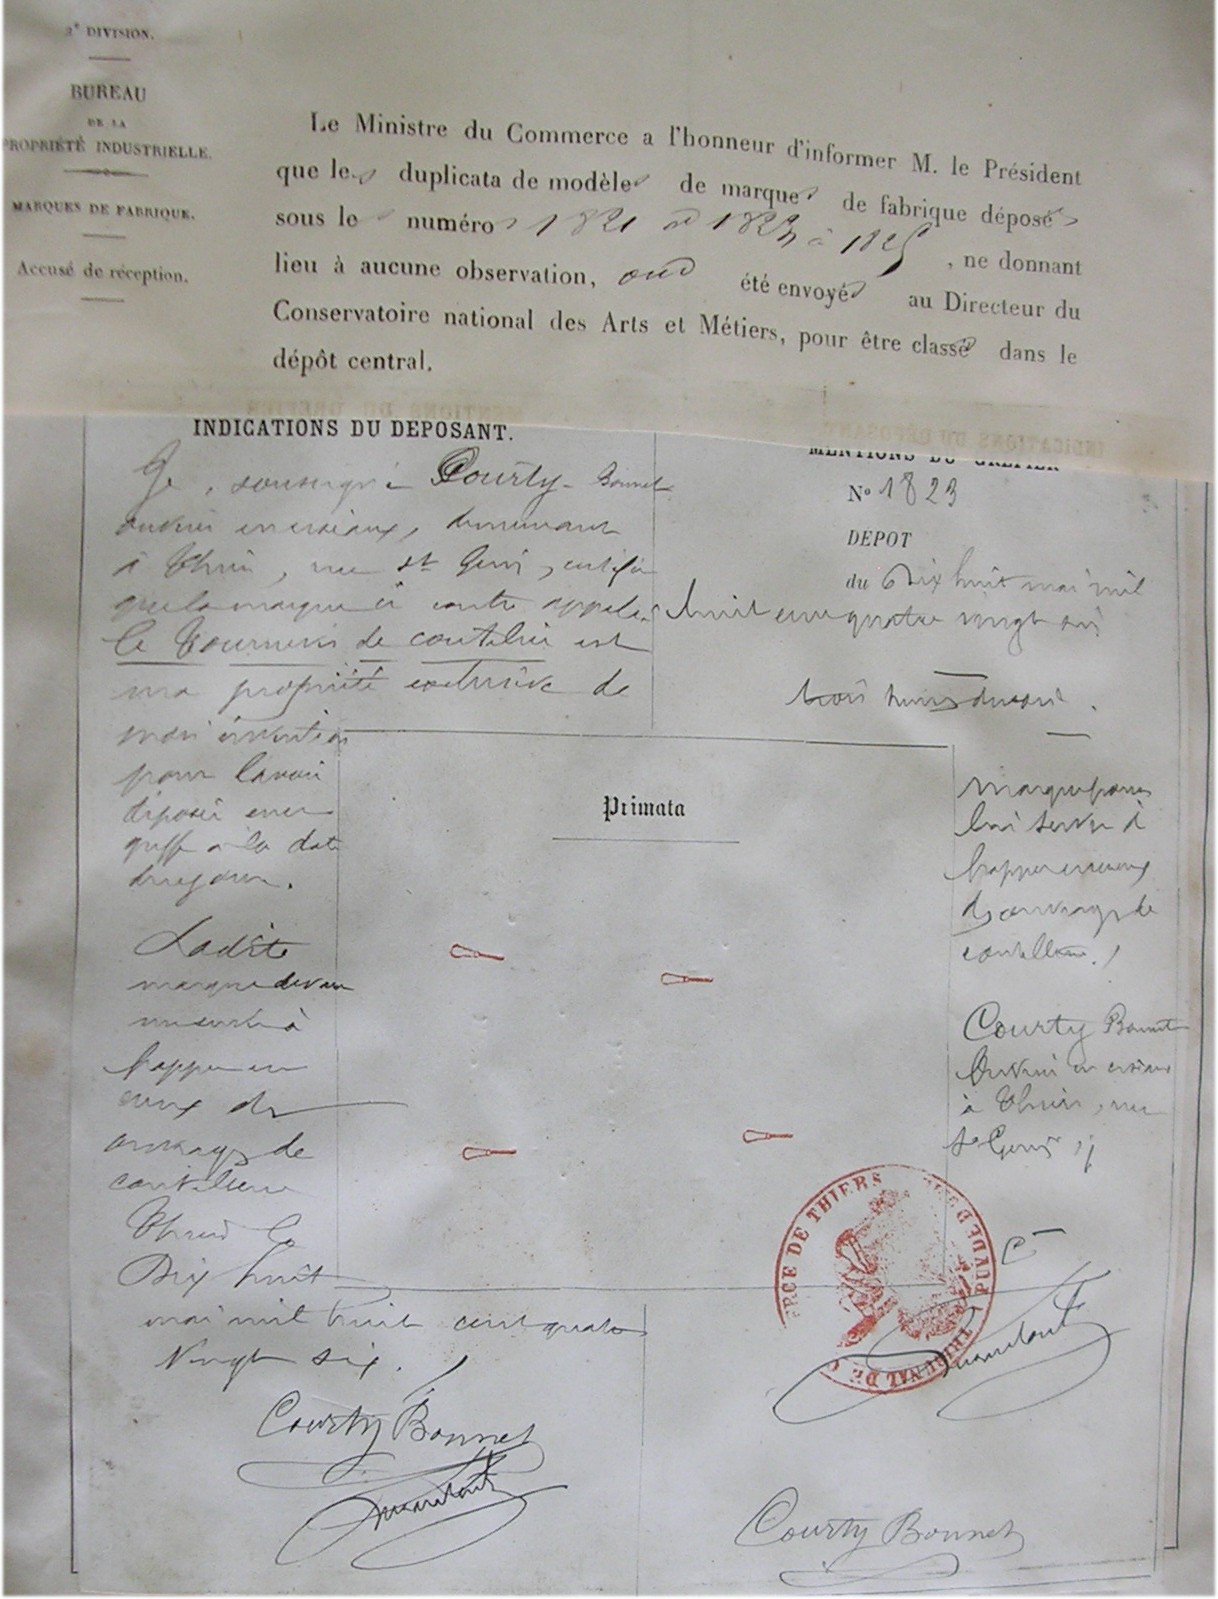 2e DIVISION.
BUREAU
DE LA
PROPRIÉTÉ INDUSTRIELLE.
MARQUES DE FABRIQUE.
Accusé de réception.
Le Ministre du Commerce a l'honneur d'informer M. le Président
que les duplicata de modèles de marques de fabrique déposés
sous les numéros 1821 et 1823 à 1825, ne donnant
lieu à aucune observation, ont été envoyés au Directeur du
Conservatoire national des Arts et Métiers, pour être classés dans le
dépôt central.
INDICATIONS DU DÉPOSANT.
Je, soussigné Courty-Bonnet
ouvrier en ciseaux, demeurant
à Thiers, rue St Genès, certifie
que la marque ci contre appelée
le Tournevis de coutelier est
ma propriété exclusive de
mon invention
pour l'avoir
déposée au
greffe à la date
du jour.
Ladite
marque devant
me servir à
frapper en
creux des
ouvrages de
coutellerie
Thiers le
Dix huit
mai mil huit cent quatre
Vingt six.
Courty Bonnet
MENTIONS DU GREFFIER
No 1823
DÉPÔT
du Dix huit mai mil
huit cent quatre vingt six
trois heures du soir.
Primata
marque pour
lui servir à
frapper en creux
des ouvrages de
coutellerie.
Courty Bonnet
Ouvrier en ciseaux
à Thiers, rue
St Genès
TRIBUNAL DE C RCE DE THIERS
PUY DE D
Courty Bonnet